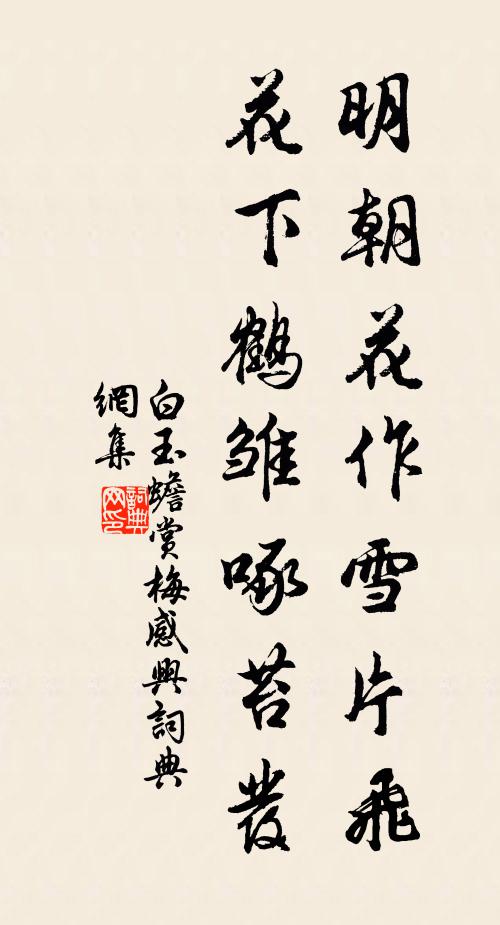 明朝花作雪片飛
花下鶴雛啄苔發
白玉蟾賞梅感興詞典
網集
詞典
網印